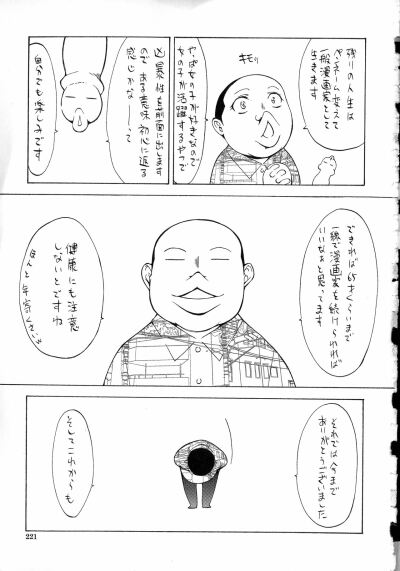 残りの人生は
ペンネーム変えて
一般漫画家として
生きます
キモリ
やっぱ女の子が好きなので
女の子が活躍するやつで
凶暴性を前面に出します
ので ある意味 初心に返る
感じかな——って
自分でも楽しみです
できれば65才くらいまで
一線で漫画家を続けられれば
いいなぁと思ってます
健康にも注意
しないとですね
それでは今まで
ありがとうございました
そしてこれからも
221